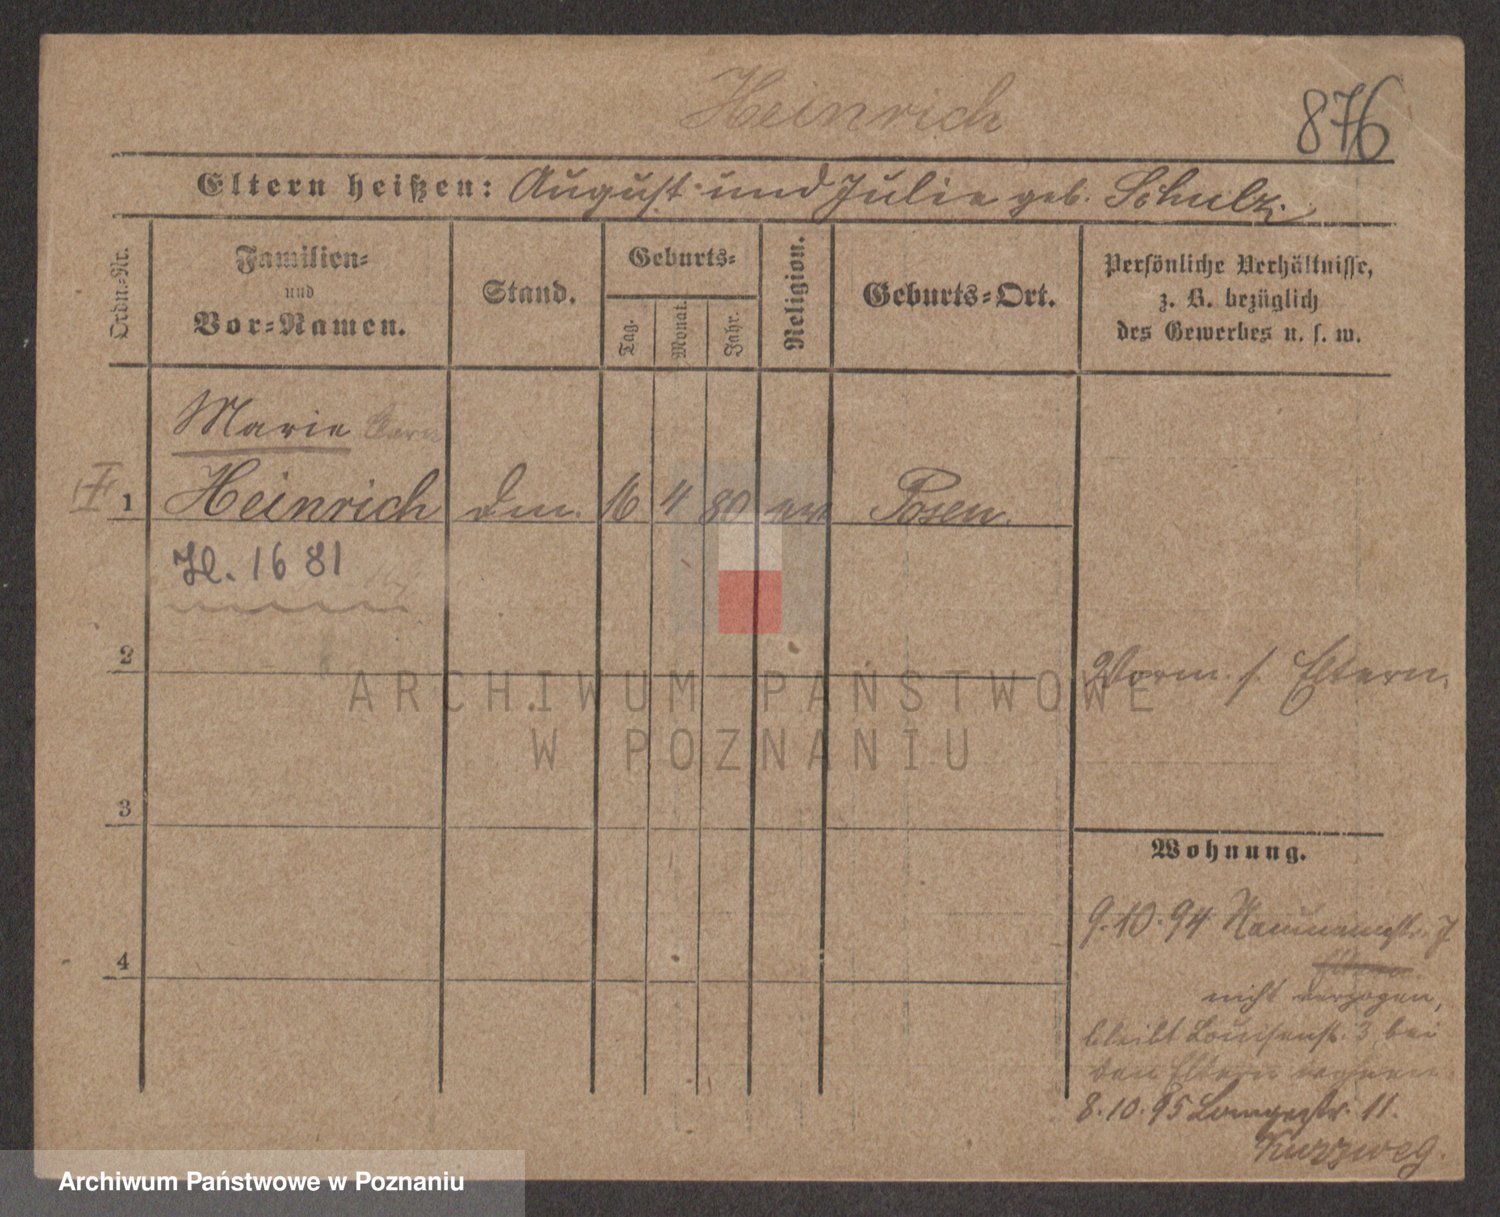 Heinrich
876
Eltern heißen: August und Julie geb. Schulz.
Ordn.-Nr.
Familien-
und
Vor-Namen.
Stand.
Geburts-
Tag.
Monat.
Jahr.
Religion.
Geburts-Ort.
Persönliche Verhältnisse,
z. B. bezüglich
des Gewerbes u. s. w.
Marie
I 1 Heinrich 16 4 80 ev Posen.
H. 16 81
2
Vorm. s. Eltern.
3
4
Wohnung.
9.10.94 Naumannstr.
nicht verzogen,
bleibt Louisenstr. 3 bei
den Eltern wohnen
8.10.95 Langestr. 11.
Kurzweg.
ARCHIWUM PAŃSTWOWE
W POZNANIU
Archiwum Państwowe w Poznaniu